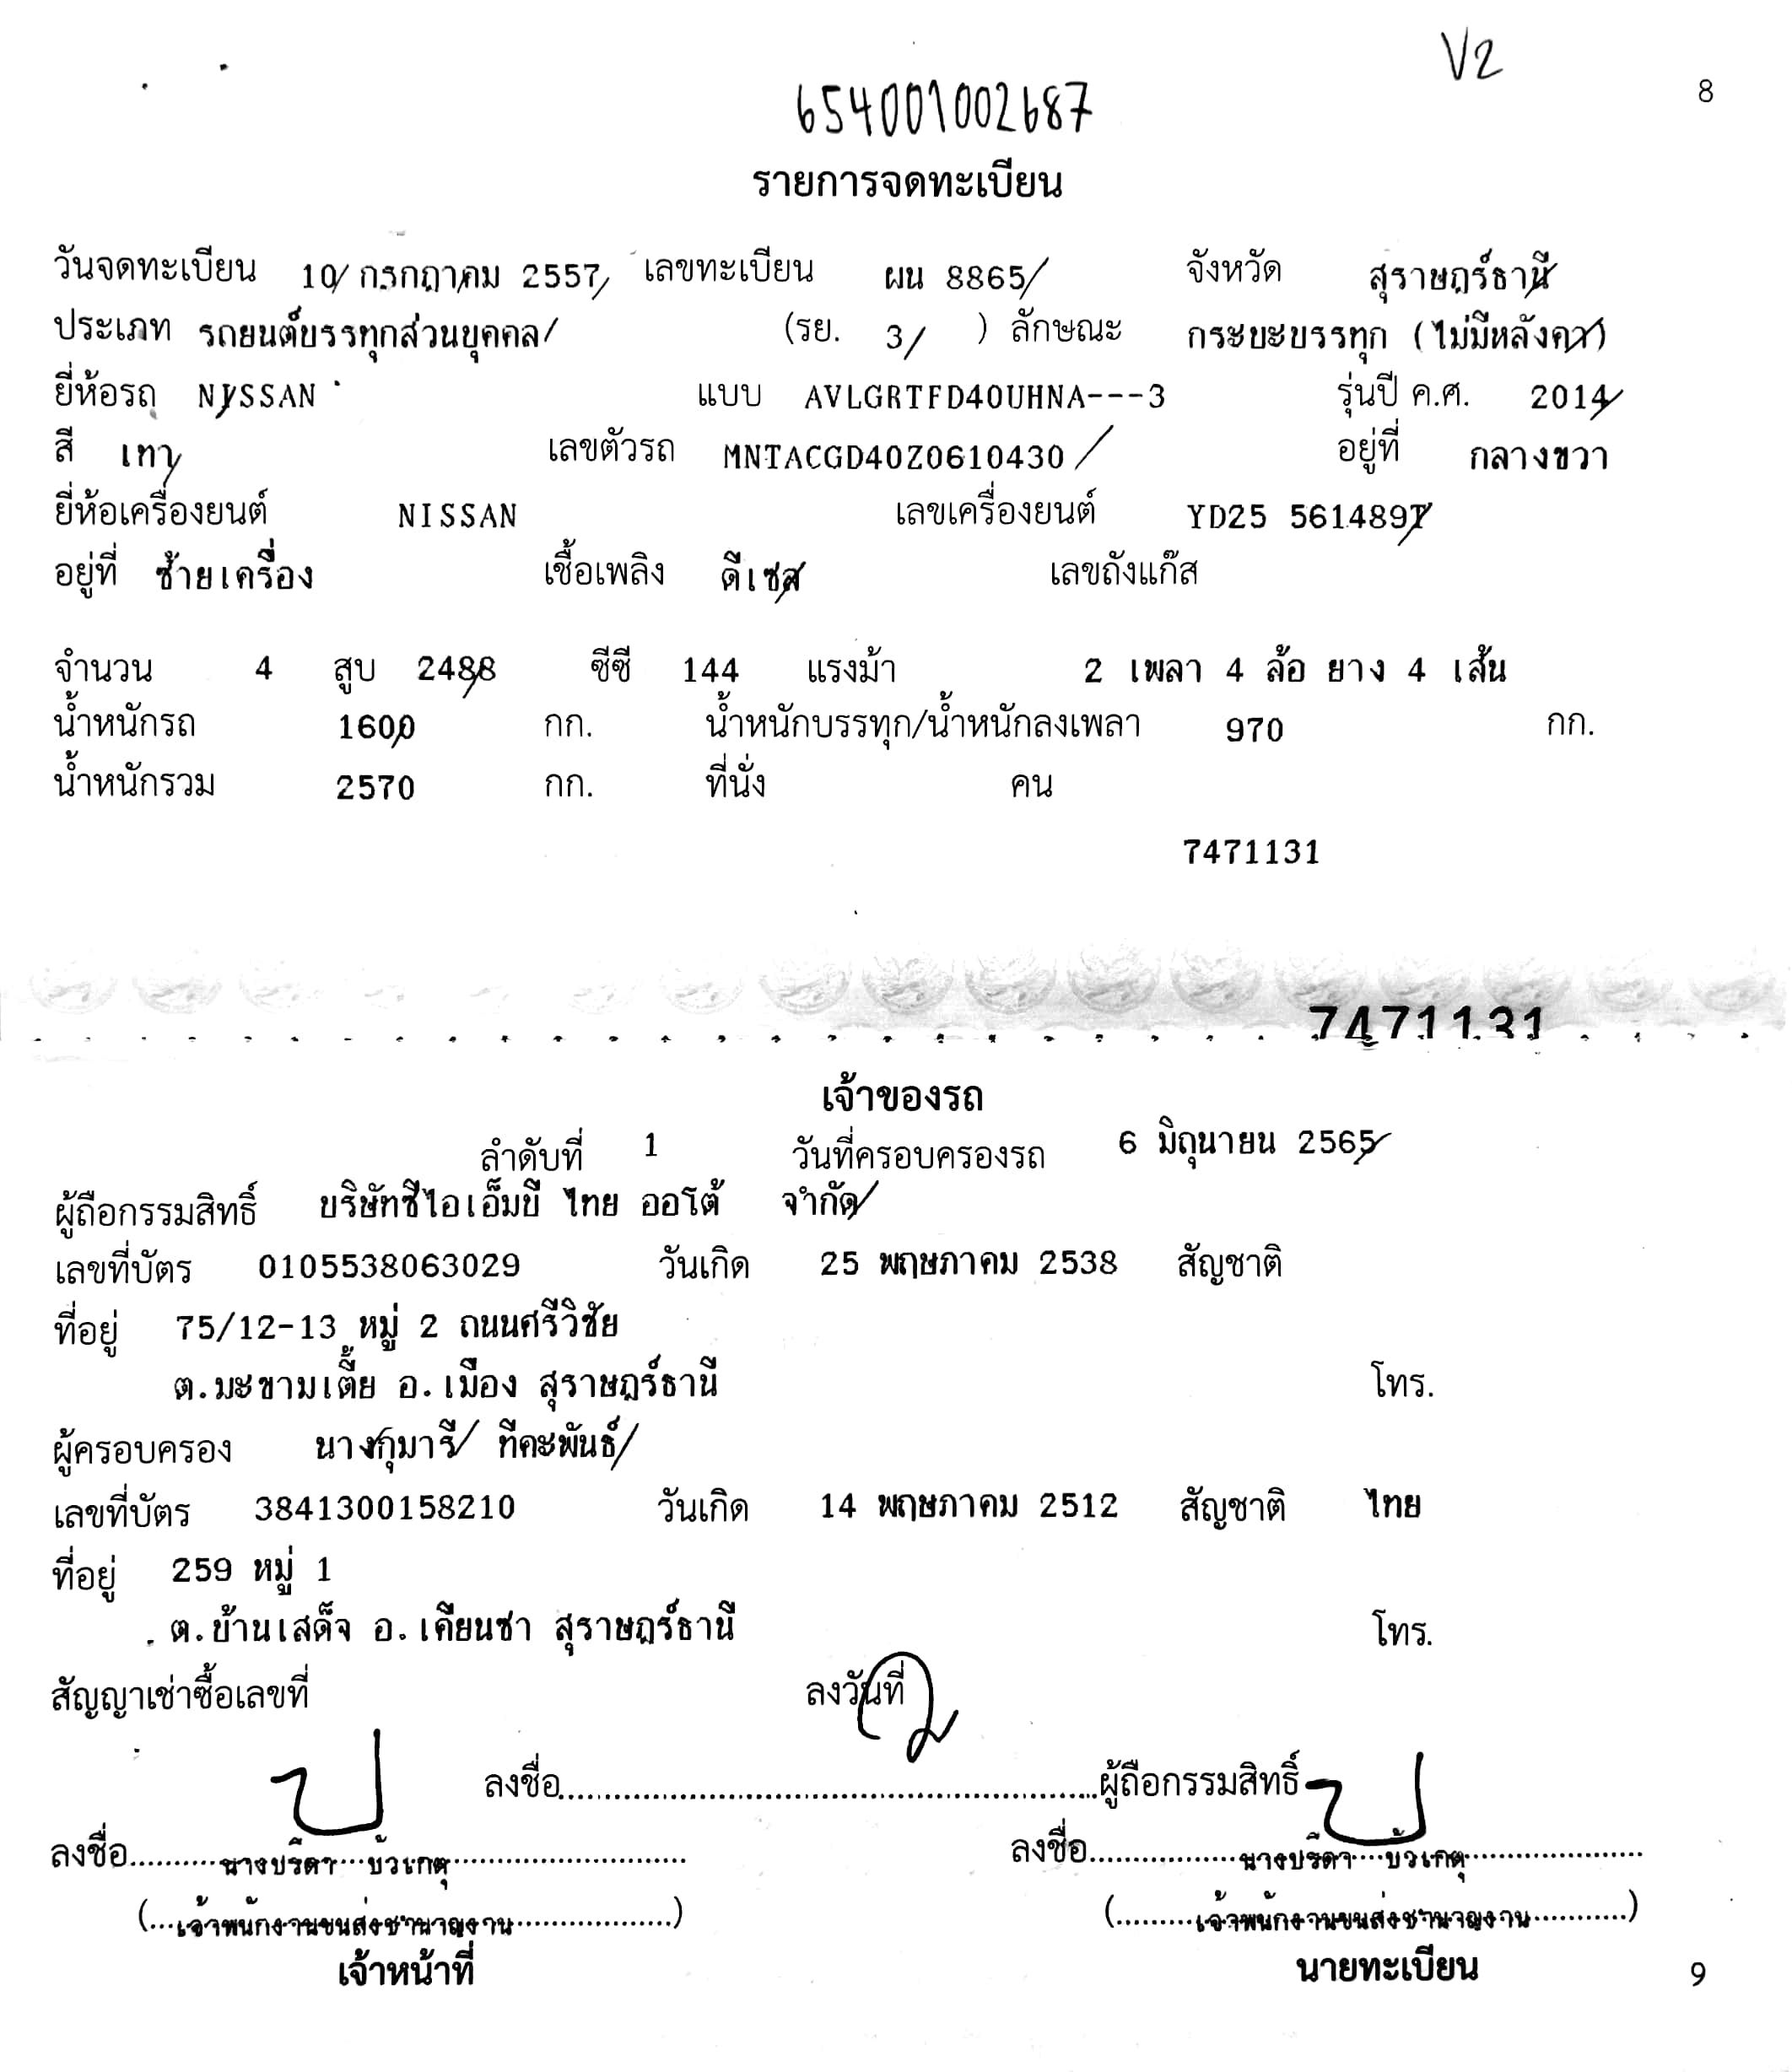 V2
8
654001002687
รายการจดทะเบียน
วันจดทะเบียน 10 กรกฎาคม 2557 เลขทะเบียน ผน 8865 จังหวัด สุราษฎร์ธานี
ประเภท รถยนต์บรรทุกส่วนบุคคล (รย. 3 ) ลักษณะ กระบะบรรทุก (ไม่มีหลังคา)
ยี่ห้อรถ NISSAN แบบ AVLGRTFD40UHNA---3 รุ่นปี ค.ศ. 2014
สี เทา เลขตัวรถ MNTACGD40Z0610430 อยู่ที่ กลางขวา
ยี่ห้อเครื่องยนต์ NISSAN เลขเครื่องยนต์ YD25 561489T
อยู่ที่ ซ้ายเครื่อง เชื้อเพลิง ดีเซล เลขถังแก๊ส
จำนวน 4 สูบ 2488 ซีซี 144 แรงม้า 2 เพลา 4 ล้อ ยาง 4 เส้น
น้ำหนักรถ 1600 กก. น้ำหนักบรรทุก/น้ำหนักลงเพลา 970 กก.
น้ำหนักรวม 2570 กก. ที่นั่ง คน
7471131
7471131
เจ้าของรถ
ลำดับที่ 1 วันที่ครอบครองรถ 6 มิถุนายน 2565
ผู้ถือกรรมสิทธิ์ บริษัทซีไอเอ็มบี ไทย ออโต้ จำกัด
เลขที่บัตร 0105538063029 วันเกิด 25 พฤษภาคม 2538 สัญชาติ
ที่อยู่ 75/12-13 หมู่ 2 ถนนศรีวิชัย
ต.มะขามเตี้ย อ.เมือง สุราษฎร์ธานี โทร.
ผู้ครอบครอง นางกุมารี ทีคะพันธ์
เลขที่บัตร 3841300158210 วันเกิด 14 พฤษภาคม 2512 สัญชาติ ไทย
ที่อยู่ 259 หมู่ 1
ต.บ้านเสด็จ อ.เคียนซา สุราษฎร์ธานี โทร.
สัญญาเช่าซื้อเลขที่ ลงวันที่
ลงชื่อ ผู้ถือกรรมสิทธิ์
ลงชื่อ นางปรีดา บัวเกตุ ลงชื่อ นางปรีดา บัวเกตุ
(เจ้าพนักงานขนส่งชำนาญงาน) (เจ้าพนักงานขนส่งชำนาญงาน)
เจ้าหน้าที่ นายทะเบียน 9